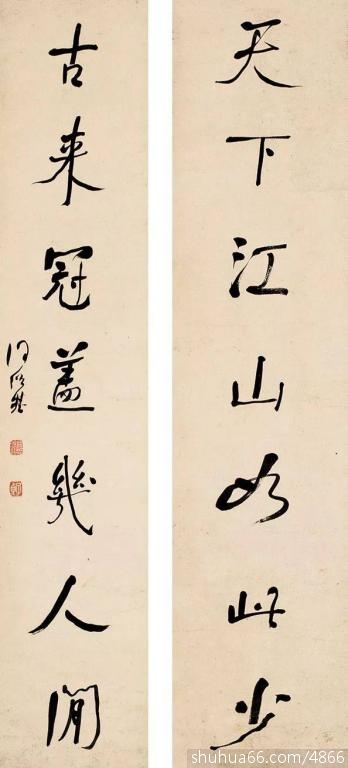 天下江山如此少
古来冠盖幾人閒
何紹基
shuhua66.com/4866